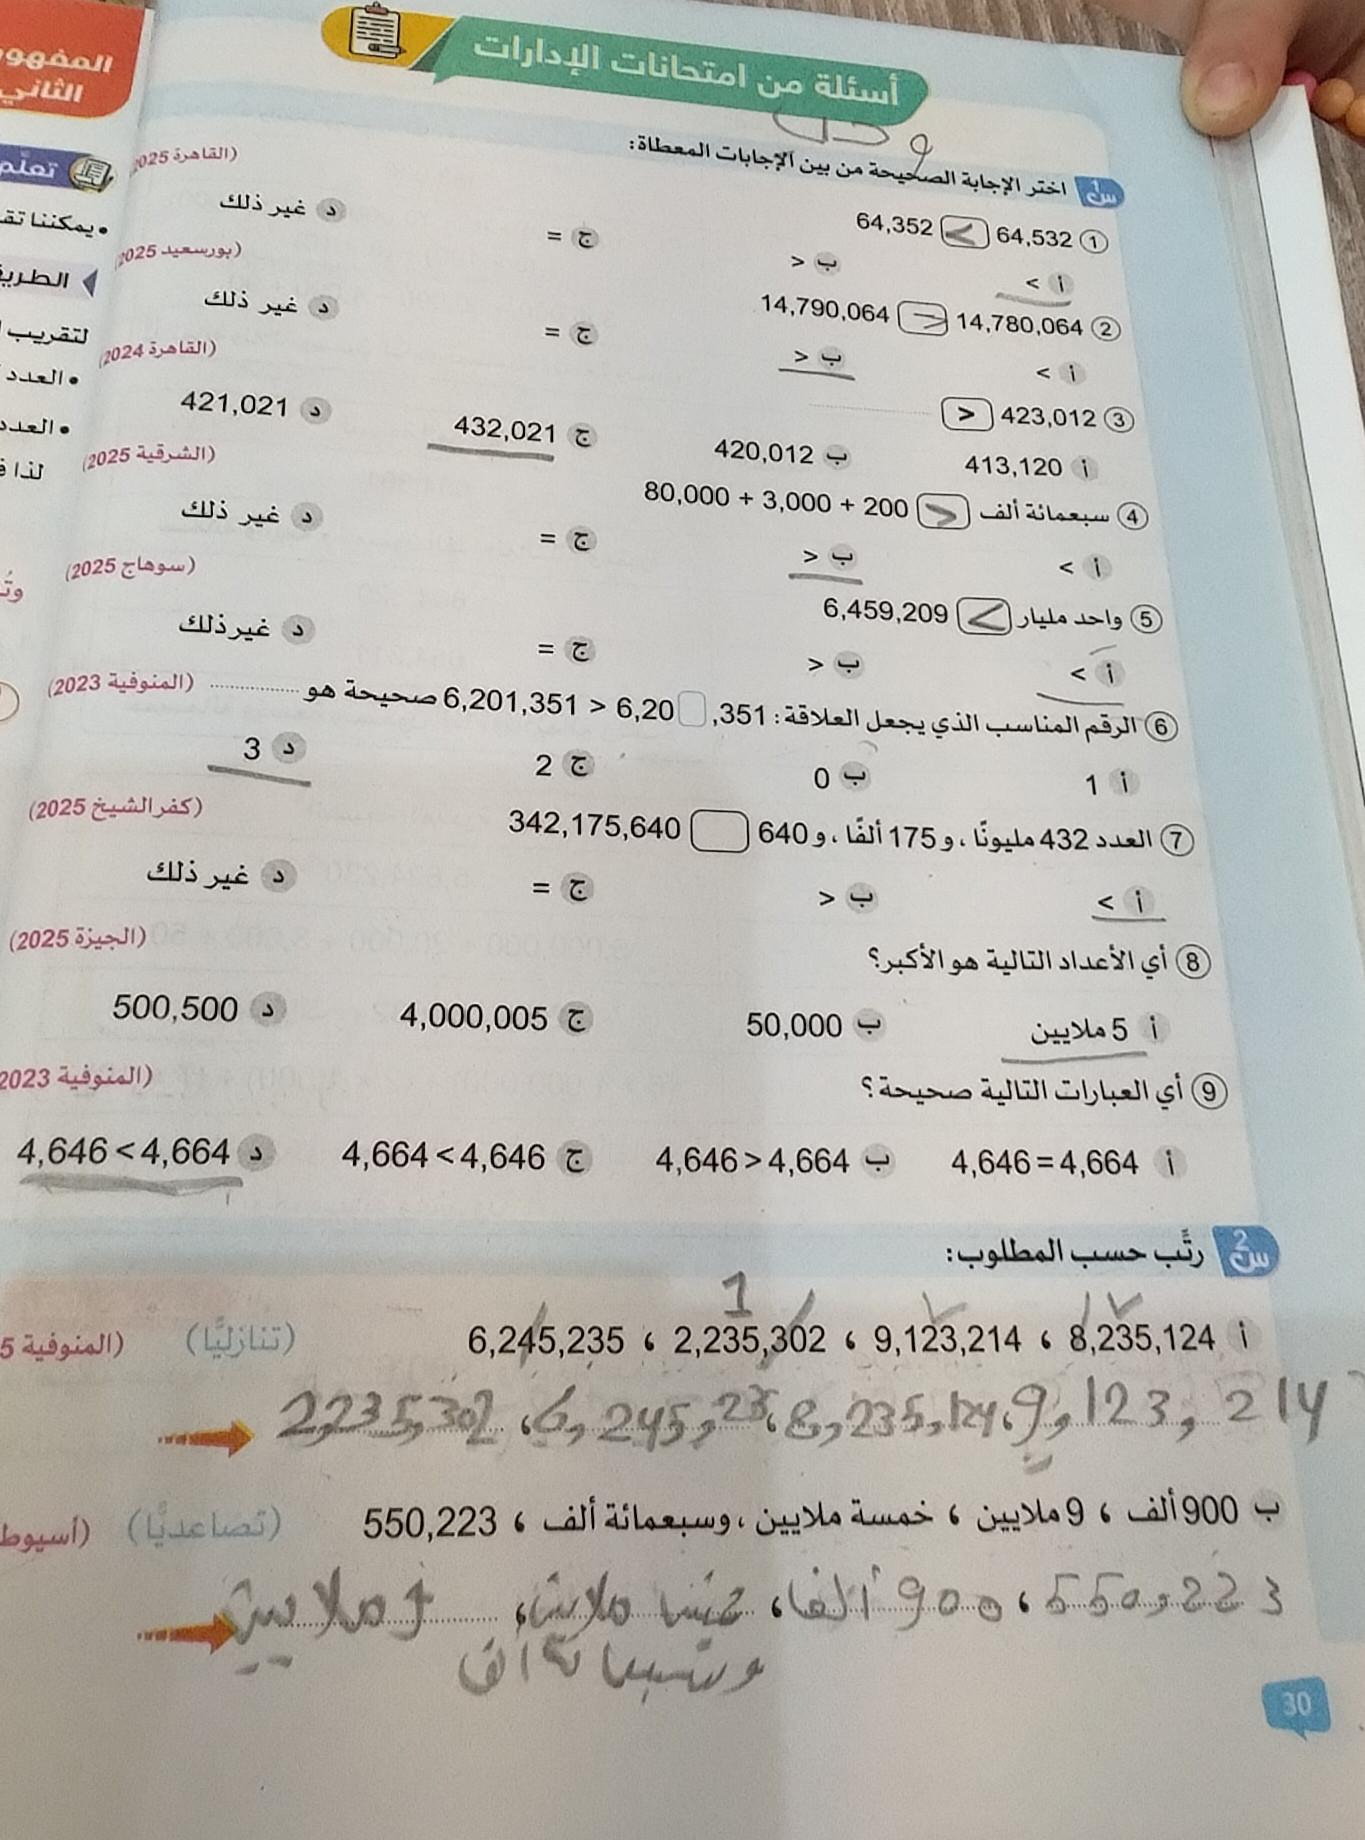 المفهوم
الثاني
تعلّم
• يمكننا تق
الطري
لتقريب ا
• العدد
• العدد
لذا ف
أسئلة من امتحانات الإدارات
س1 اختر الإجابة الصحيحة من بين الإجابات المعطاة:
(القاهرة 2025)
1 64,532 < 64,352
أ < ب > ج = د غير ذلك
(بورسعيد 2025)
2 14,780,064 > 14,790,064
أ < ب > ج = د غير ذلك
(القاهرة 2024)
3 423,012 > ............
أ 413,120 ب 420,012 ج 432,021 د 421,021
(الشرقية 2025)
4 سبعمائة ألف > 80,000 + 3,000 + 200
أ < ب > ج = د غير ذلك
(سوهاج 2025)
5 واحد مليار < 6,459,209
أ < ب > ج = د غير ذلك
6 الرقم المناسب الذي يجعل العلاقة: 6,201,351 > 6,20□,351 صحيحة هو ............ (المنوفية 2023)
أ 1 ب 0 ج 2 د 3
7 العدد 432 مليونًا، و 175 ألفًا، و 640 □ 342,175,640 (كفر الشيخ 2025)
أ < ب > ج = د غير ذلك
8 أي الأعداد التالية هو الأكبر؟ (الجيزة 2025)
أ 5 ملايين ب 50,000 ج 4,000,005 د 500,500
9 أي العبارات التالية صحيحة؟ (المنوفية 2023
أ 4,646 = 4,664 ب 4,646 > 4,664 ج 4,664 < 4,646 د 4,646 < 4,664
س2 رتَّب حسب المطلوب:
1
أ 8,235,124 ، 9,123,214 ، 2,235,302 ، 6,245,235 (تنازليًّا) (المنوفية 5
9,123,214 ، 8,235,124 ، 6,245,23 ، 2,235,302
ب 900 ألف ، 9 ملايين ، خمسة ملايين، وسبعمائة ألف ، 550,223 (تصاعديًّا) (أسيوط
550,223 ، 900 ألفا ، ملاين ، ملايين
30